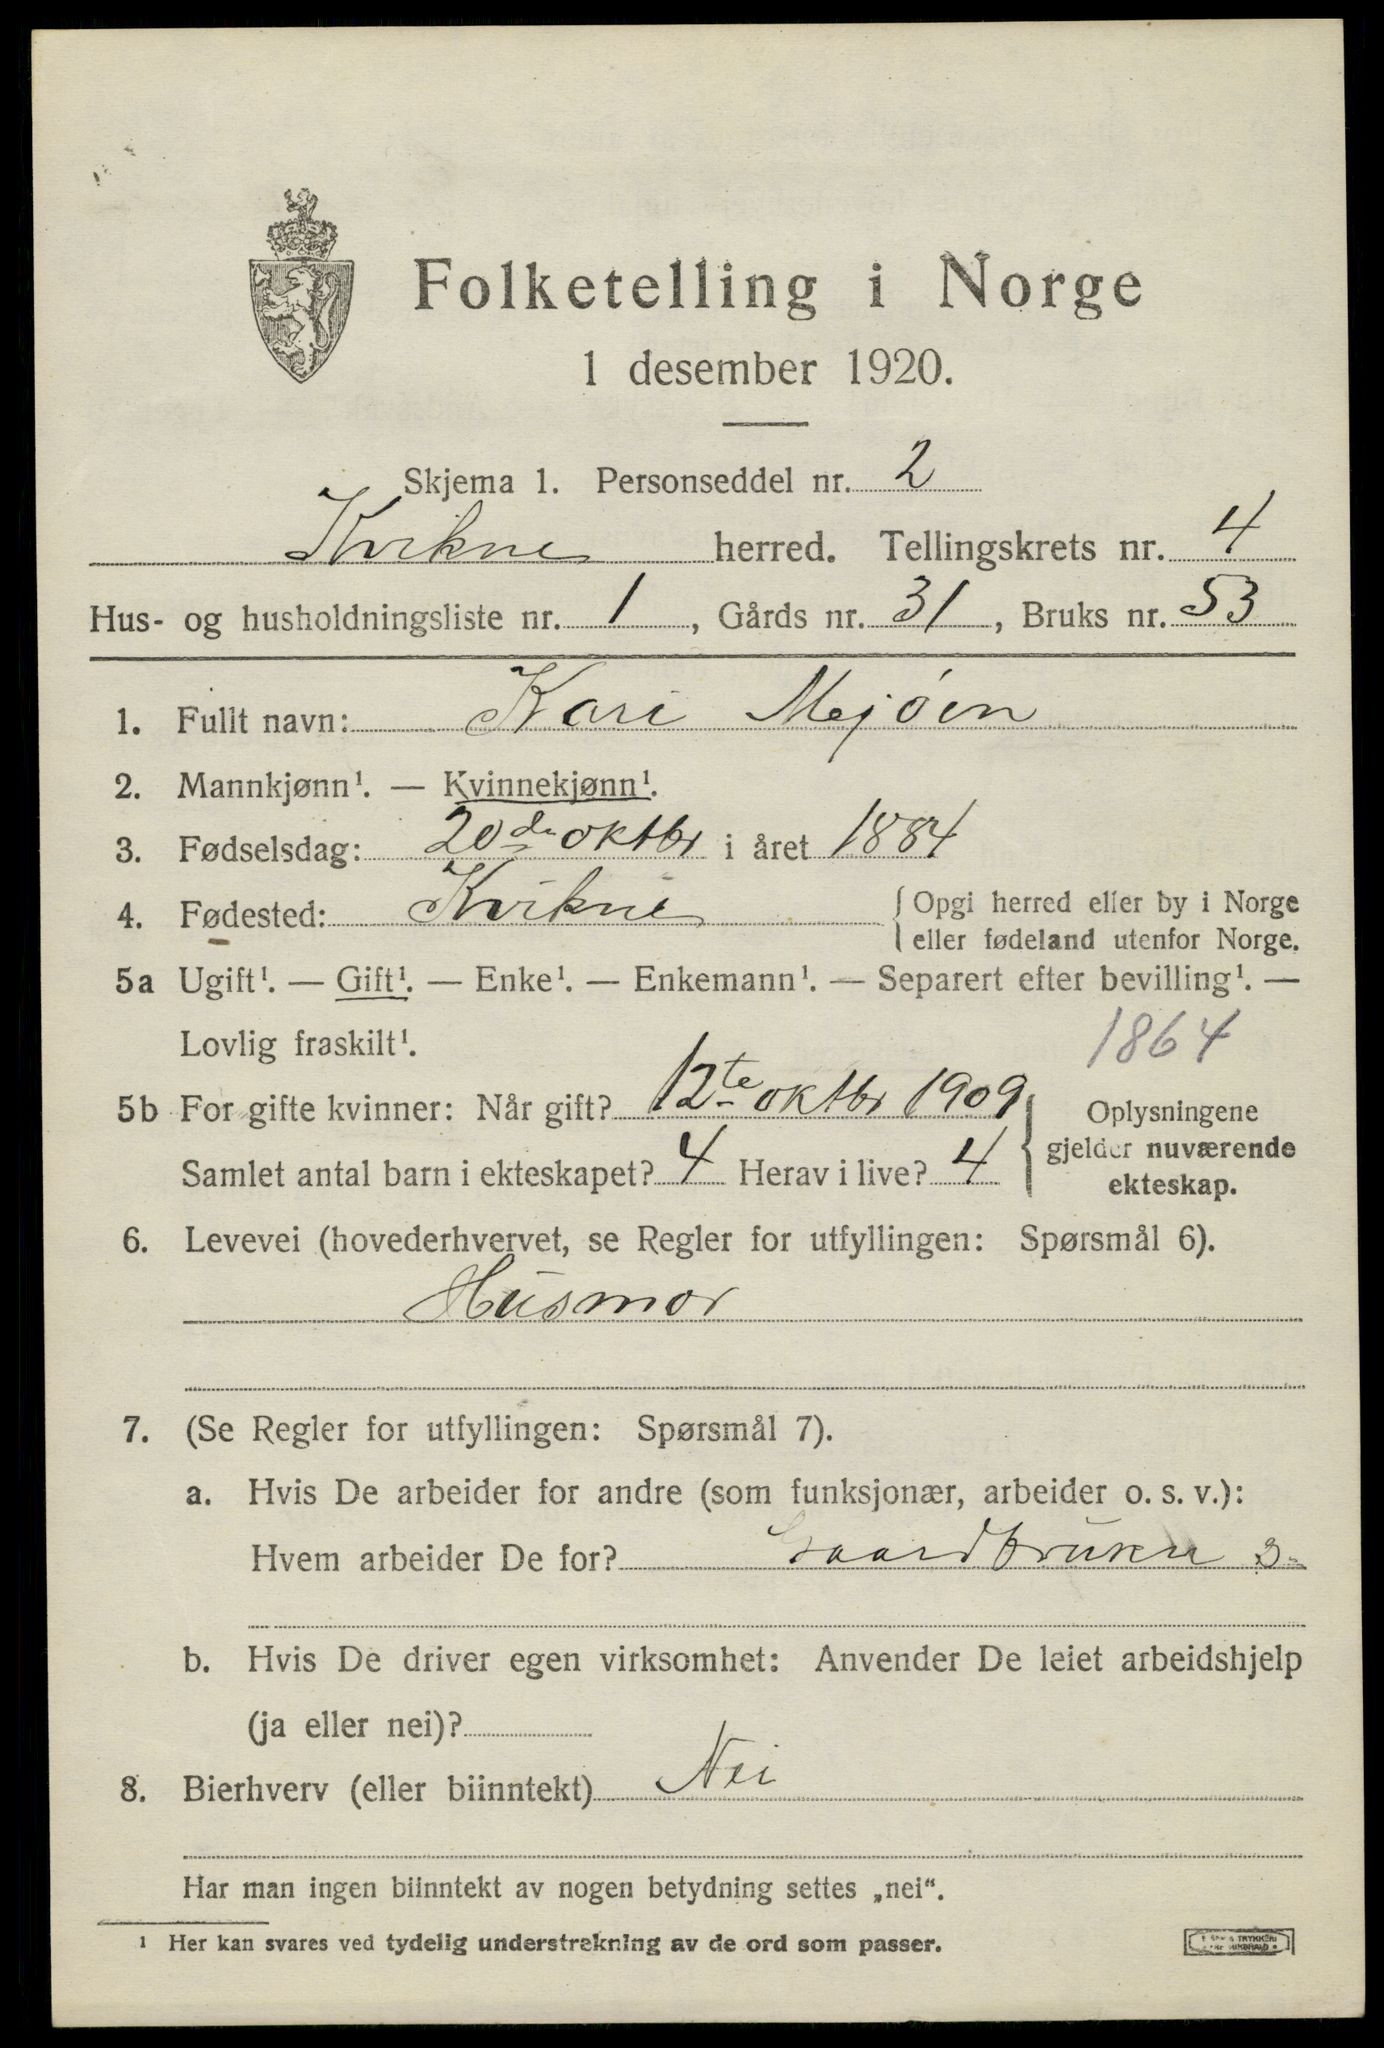 Folketelling i Norge
1 desember 1920.
Skjema 1. Personseddel nr. 2
Kvikne herred. Tellingskrets nr. 4
Hus- og husholdningsliste nr. 1, Gårds nr. 31, Bruks nr. 53
1. Fullt navn: Kari Mejøen
2. Mannkjønn¹. — Kvinnekjønn¹.
3. Fødselsdag: 20de oktbr i året 1884
4. Fødested: Kvikne { Opgi herred eller by i Norge
eller fødeland utenfor Norge.
5a Ugift¹. — Gift¹. — Enke¹. — Enkemann¹. — Separert efter bevilling¹. —
Lovlig fraskilt¹. 1864
5b For gifte kvinner: Når gift? 12te oktbr 1909
Samlet antal barn i ekteskapet? 4 Herav i live? 4
} Oplysningene
gjelder nuværende
ekteskap.
6. Levevei (hovederhvervet, se Regler for utfyllingen: Spørsmål 6).
Husmor
7. (Se Regler for utfyllingen: Spørsmål 7).
a. Hvis De arbeider for andre (som funksjonær, arbeider o. s. v.):
Hvem arbeider De for? Gaardbruker
b. Hvis De driver egen virksomhet: Anvender De leiet arbeidshjelp
(ja eller nei)?
8. Bierhverv (eller biinntekt) Nei
Har man ingen biinntekt av nogen betydning settes „nei“.
¹ Her kan svares ved tydelig understrekning av de ord som passer.